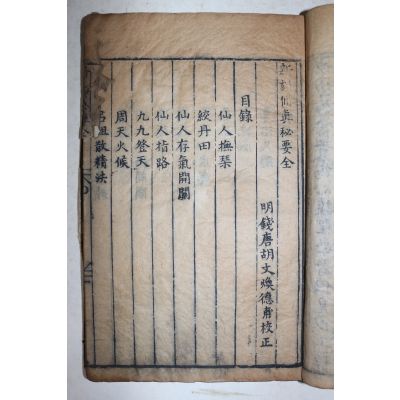 真秘要全
明錢唐胡文煥德甫校正
目錄
仙人撫琴
絞丹田
仙人存氣開關
仙人指路
九九登天
周天火候
呂祖散精法